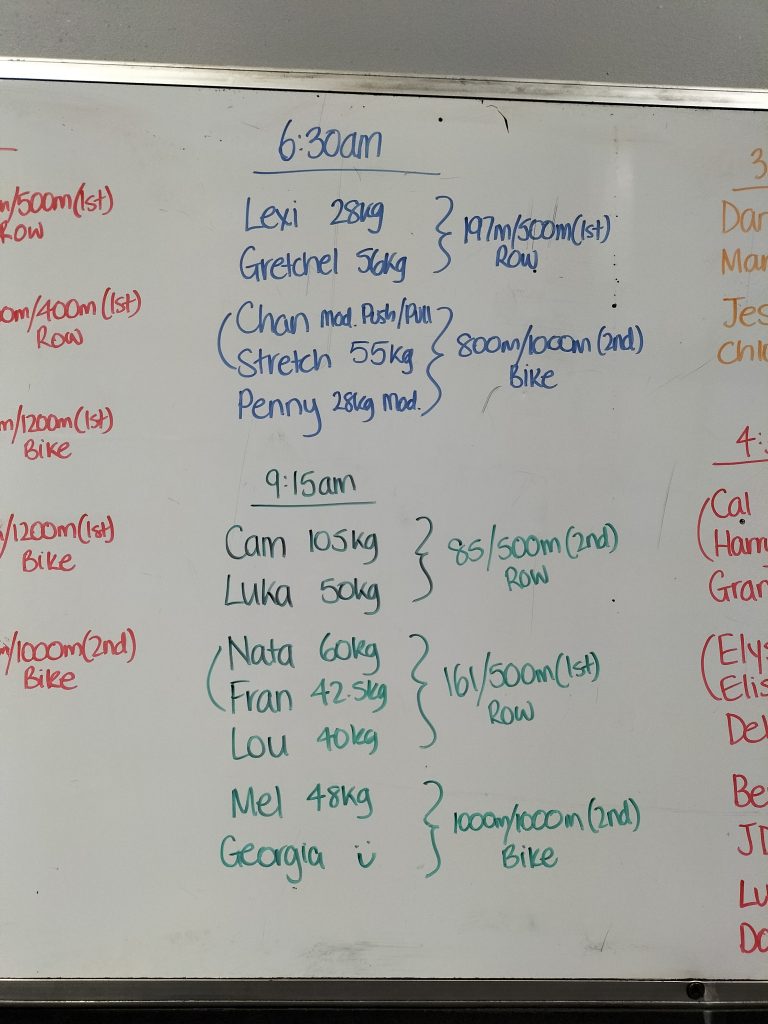 6:30am
Lexi 28kg
Gretchel 56kg
197m/500m(1st)
Row
Chan Mod. Push/Pull
Stretch 55kg
Penny 28kg Mod.
800m/1000m(2nd)
Bike
9:15am
Cam 105kg
Luka 50kg
85/500m(2nd)
Row
Nata 60kg
Fran 42.5kg
Lou 40kg
161/500m(1st)
Row
Mel 48kg
Georgia ü
1000m/1000m(2nd)
Bike
/500m(1st)
Row
/400m(1st)
Row
/1200m(1st)
Bike
/1200m(1st)
Bike
/1000m(2nd)
Bike
3
Dar
Mar
Jes
Chl
4:
Cal
Ham
Gran
Elys
Elis
Del
Be
JD
Lu
Do